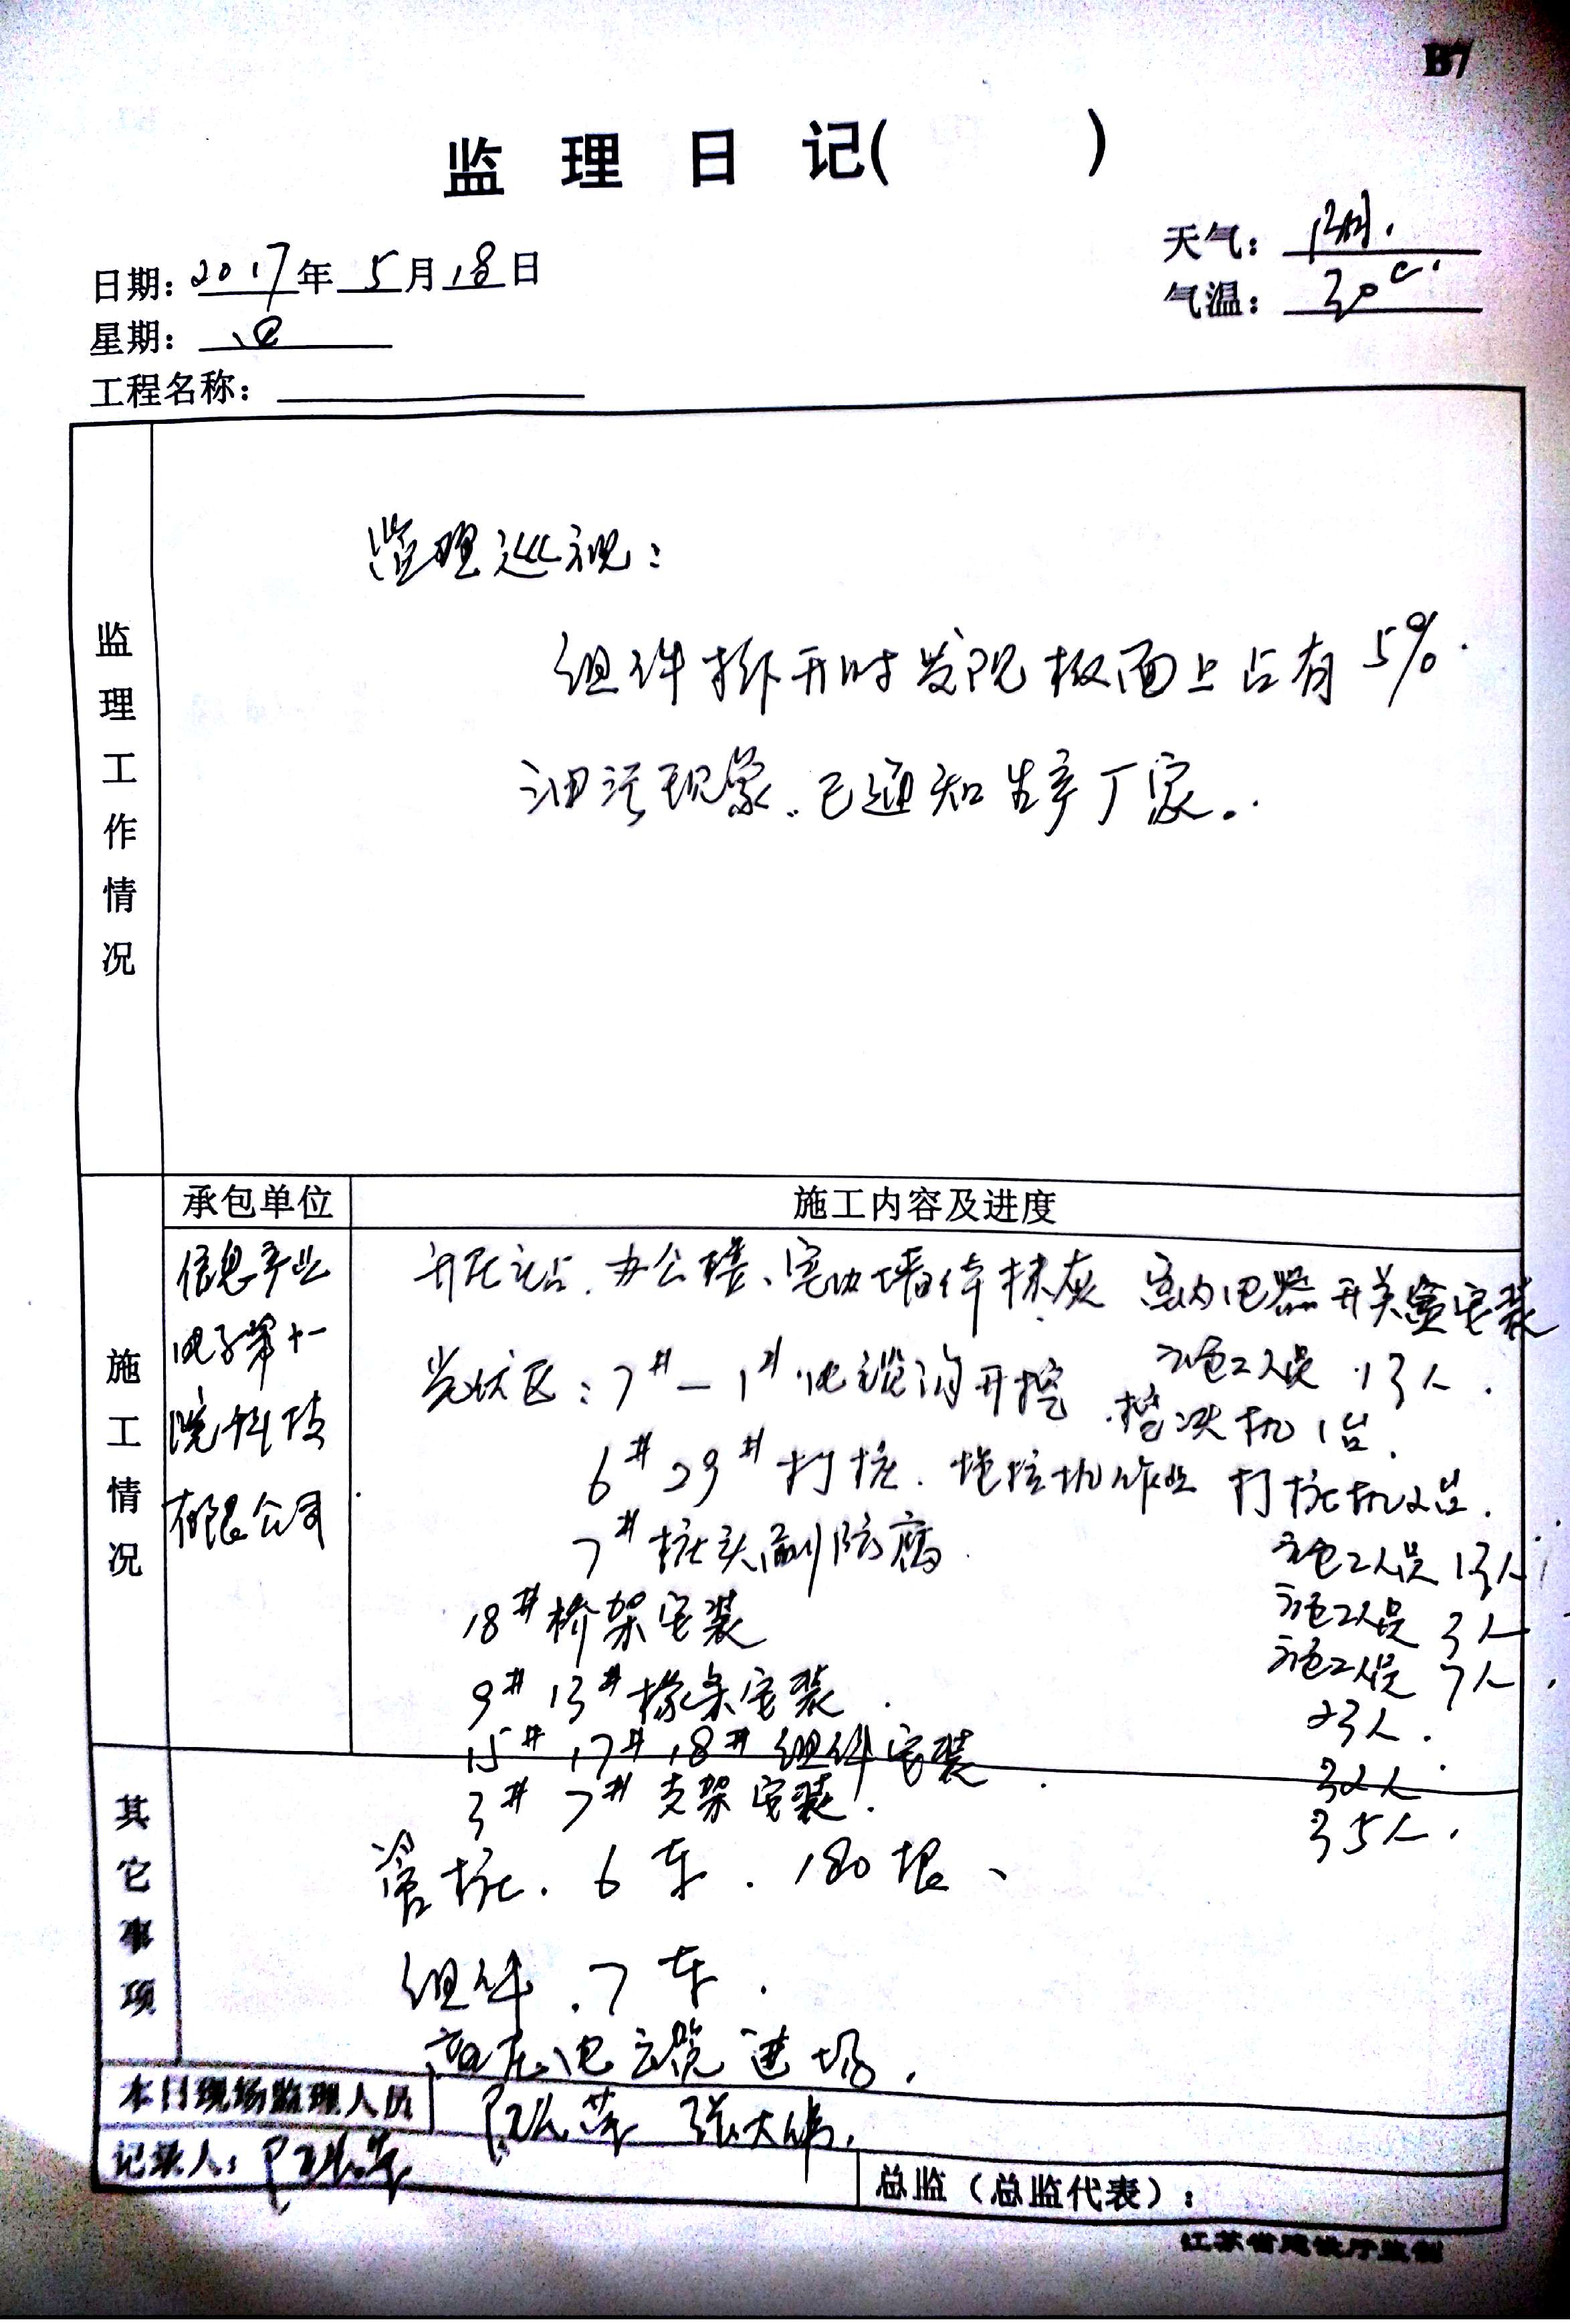 B7
监理日记(          )
天气：阴.
日期：2017年5月18日
气温：30℃.
星期：四
工程名称：
监理工作情况
监理巡视：
组件拆开时发现板面上占有5%.
油污现象.已通知生产厂家.
施工情况
承包单位
施工内容及进度
信息产业
电子第十一
院科技
有限公司
升压站.办公楼、室内墙体抹灰 室内电器开关盒安装
光伏区：7#—1#电缆沟开挖 施工人员 13人.
挖决机1台.
6# 29#打桩.拖拉机作业 打桩机2台.
7#桩头刷防腐. 施工人员 13人
18#桥架安装 施工人员 3人
9# 13#檩条安装. 施工人员 7人.
15# 17# 18#组件安装. 23人.
3# 7#支架安装. 32人
35人.
其它事项
管桩.6车.180根、
组件.7车.
高压电缆进场.
本日现场监理人员 张大伟.
记录人：
总监（总监代表）：
江苏省建设厅监制